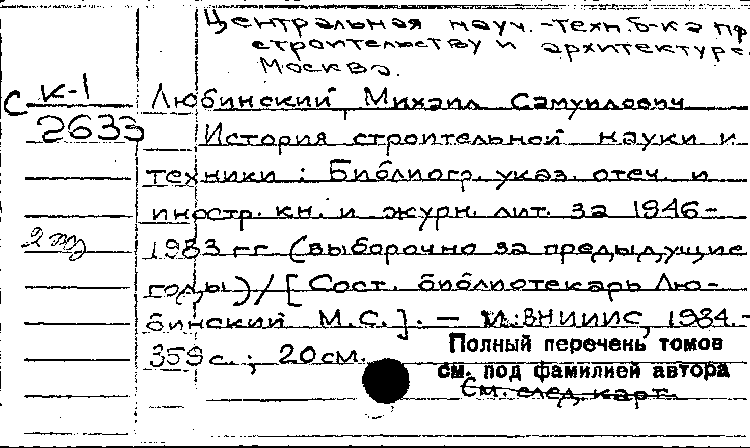 Центральная науч.-техн. б-ка п
строительству и архитектуре.
Москва.
С К-1
2633
Любинский, Михаил Самуилович
История строительной науки и
техники : Библиогр. указ. отеч. и
иностр. кн. и журн. лит. за 1946-
2 экз
1983 гг (выборочно за предыдущие
годы) / [Сост. библиотекарь Лю-
бинский М.С.]. — М.: ВНИИИС, 1984.-
359 с. ; 20 см.
Полный перечень томов
см. под фамилией автора
См. след. карт.